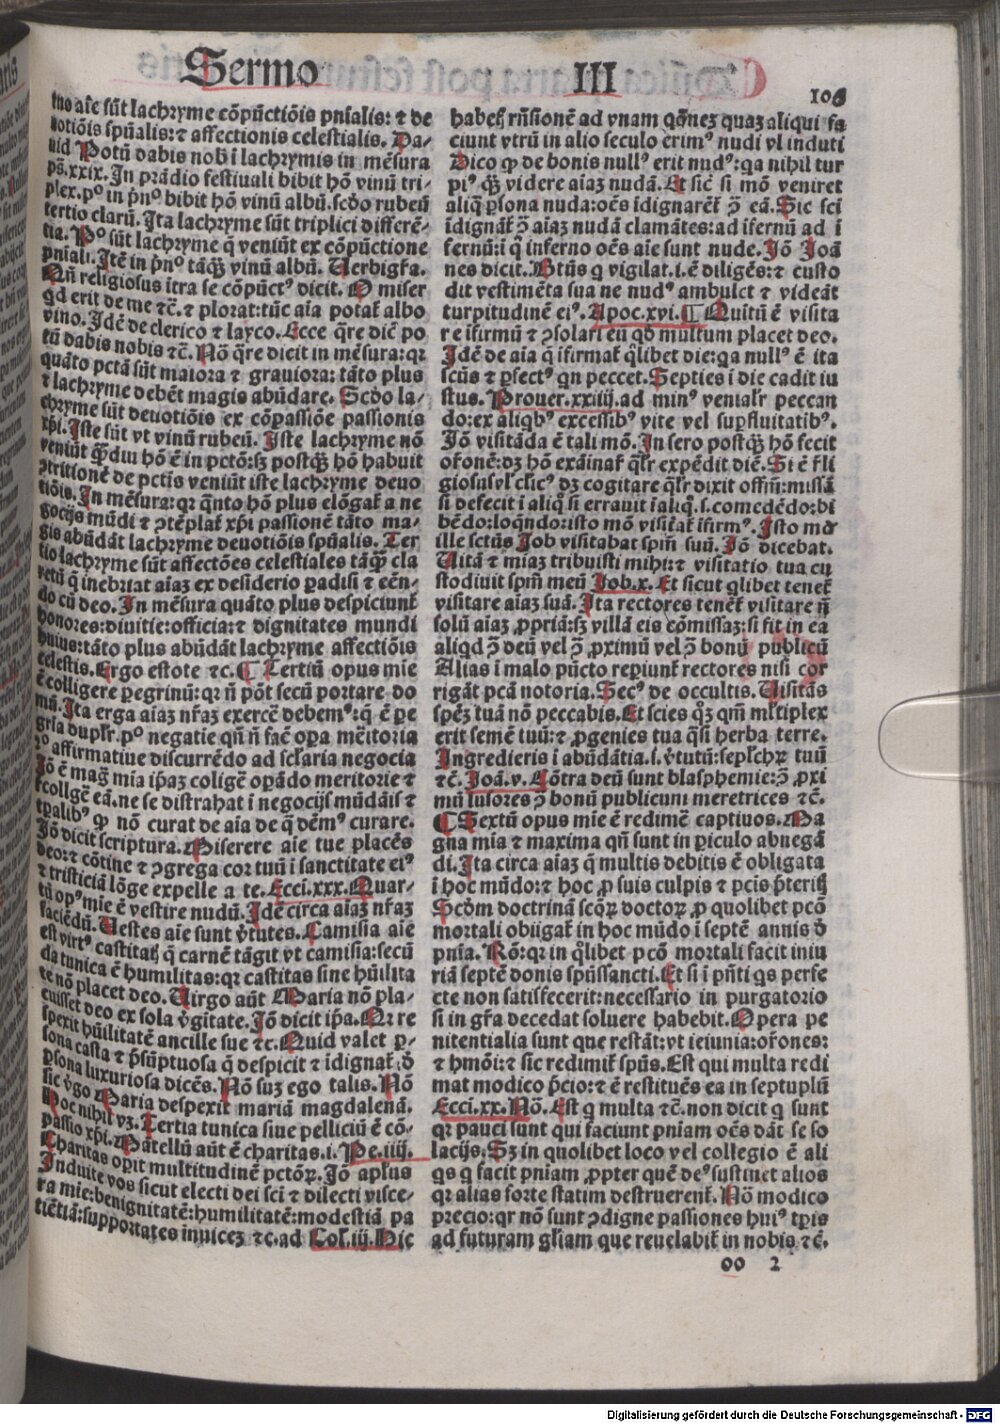 Sermo III
106
ino aīe sūt lachryme cōpūctiōis pnīalis: ⁊ de
uotiōis spūalis: ⁊ affectionis celestialis. Da-
uid Potū dabis nob̄ ī lachrymis in mēsura
ps̄.xxix. In prādio festiuali bibit hō vinū tri-
plex. pº in pn̄º bibit hō vinū albū. scd̄o rubeū
tertio clarū. Ita lachryme sūt triplici differē-
tia. Pº sūt lachryme q̄ veniūt ex cōpūctione
pniali. Itē in pn̄º tāq̄ȝ vinū albū. Uerbigr̄a.
Qn̄ religiosus ītra se cōpūctꝰ dicit. O miser
qd̄ erit de me ⁊c̄. ⁊ plorat: tūc aīa potat̄ albo
vino. Idē de clerico ⁊ layco. Ecce q̄re dic̄ po
tū dabis nobis ⁊c̄. Nō q̄re dicit in mēsura: qꝛ
quāto pctā sūt maiora ⁊ grauiora: tāto plus
⁊ lachryme debēt magis abūdare. Scd̄o la-
chryme sūt deuotiōis ex cōpassiōe passionis
xp̄i. Iste sūt vt vinū rubeū. Iste lachryme nō
veniūt q̄ȝdiu hō ē in pctō: sȝ postq̄ȝ hō habuit
ↄtritionē de pctīs veniūt iste lachryme deuo
tiōis. In mēsura: qꝛ q̄nto hō plus elōgat̄ a ne
gocijs mūdi ⁊ ↄtēplat̄ xp̄i passionē tāto ma-
gis abūdāt lachryme deuotiōis spūalis. Ter
tio lachryme sūt affectōes celestiales tāq̄ȝ cla
retū q̄ inebriat aīaȝ ex desiderio padisi ⁊ eēn-
do cū deo. In mēsura quāto plus despiciunt̄
honores: diuitie: officia: ⁊ dignitates mundi
huius: tāto plus abūdāt lachryme affectiōis
celestis. Ergo estote ⁊c. ¶ Tertiū opus mie
ē colligere pegrinū: qꝛ n̄ pōt secū portare do
mū. Ita erga aīaȝ nr̄aȝ exercē debemꝰ: q̄ ē pe
gria duplr̄. pº negatie qn̄ n̄ facē oꝑa mēitoria
2º affirmatiue discurrēdo ad scl̄aria negocia
Iō ē magꝰ mia ip̄aȝ coligē opādo meritorie ⁊
rcollgē eā. ne se distrahat ī negocijs mūdāis ⁊
tpalibꝰ qꝫ nō curat de aīa de q̄ dēmꝰ curare.
Iō dicit scriptura. Miserere aīe tue placēs
deo: ⁊ cōtine ⁊ ↄgrega cor tuū ī sanctitate eiꝰ
⁊ tristiciā lōge expelle a te. Ecci.xxx. Quar-
tū opꝰ mie ē vestire nudū. Idē circa aīaȝ nr̄aȝ
faciēdū. Uestes aīe sunt v̄tutes. Camisia aīe
est virtꝰ castitatꝭ q̄ carnē tāgit vt camisia: secū
da tunica ē humilitas: qꝛ castitas sine hūilita
te nō placet deo. Uirgo aūt Maria nō pla-
cuisset deo ex sola v̄gitate. Iō dicit ip̄a. Qꝛ re
spexit hūilitatē ancille sue ⁊c. Quid valet ꝑ-
sona casta ⁊ p̄sūptuosa q̄ despicit ⁊ idignat̄ d̄
ꝑsona luxuriosa dicēs. Nō suȝ ego talis. Nō
sic v̄go Maria despexit mariā magdalenā.
Hoc nihil vȝ. Tertia tunica siue pelliciū ē cō-
passio xp̄i. Matellū aūt ē charitas.i. Pe.iiij.
Charitas opit multitudinē pctōꝝ. Iō apl̄us
Induite vos sicut electi dei sc̄i ⁊ dilecti visce-
ra mie: benignitatē: humilitatē: modestiā pa
tiētiā: supportātes inuicē ⁊c. ad Col̄.iij. Hic
habetꝭ rn̄sionē ad vnam qōneȝ quaȝ aliqui fa
ciunt vtrū in alio seculo erimꝰ nudi vl induti
Dico qꝫ de bonis nullꝰ erit nudꝰ: qa nihil tur
piꝰ q̄ȝ videre aīaȝ nudā. Et sic̄ si mō veniret
aliq̄ ꝑsona nuda: oēs idignarēt̄ ↄ̄ eā. Sic sc̄i
idignāt̄ ↄ̄ aīaȝ nudā clamātes: ad ifernū ad i
fernū: i q̄ inferno oēs aīe sunt nude. Iō Ioā
nes dicit. Btūs q vigilat. i. ē diligēs: ⁊ custo
dit vestimēta sua ne nudꝰ ambulet ⁊ videāt
turpitudinē eiꝰ. Apoc.xvi. ¶ Quitū ē visita
re īfirmū ⁊ ↄsolari eū qd̄ multum placet deo.
Idē de aīa q̄ īfirmat̄ q̄libet die: qa nullꝰ ē ita
scūs ⁊ ꝑfectꝰ qn peccet. Septies ī die cadit iu
stus. Prouer.xxiiij. ad minꝰ venialr̄ peccan
do: ex aliqbꝰ excessibꝰ vite vel suꝑfluitatibꝰ.
Iō visitāda ē tali mō. In sero postq̄ȝ hō fecit
or̄onē: dȝ hō exāinar̄ q̄lr̄ expēdit diē. Si ē r̄li
giosus vl clicꝰ dȝ cogitare q̄lr̄ dixit offm̄: missā
si defecit ī aliq̄ si errauit īaliq̄.s. comedēdo: bi
bēdo: loqn̄do: isto mō visitat̄ īfirmꝰ. Isto mō
ille sctūs Job visitabat spm̄ suū. Iō dicebat.
Uitā ⁊ miaȝ tribuisti mihi: ⁊ visitatio tua cu
stodiuit spm̄ meū Job.x. Et sicut q̄libet tenet̄
visitare aīaȝ suā. Ita rectores tenēt̄ visitare n̄
solū aīaȝ ꝓpriā: sȝ villā eis cōmissaȝ: si fit in ea
aliqd ↄ̄ deū vel ↄ̄ ꝓximū vel ↄ̄ bonū publicū
Alias ī malo pūcto repiunt̄ rectores nisi cor
rigāt pcā notoria. Secꝰ de occultis. Uisitās
spēȝ tuā nō peccabis. Et scies qȝ qm̄ mltiplex
erit semē tuū: ⁊ ꝓgenies tua q̄si herba terre.
Ingredieris ī abūdātia.i. v̄tutū: sepl̄chꝝ tuū
⁊c̄. Joā.v. Cōtra deū sunt blasphemie: ↄ̄ ꝓxi
mū lusores ↄ̄ bonū publicum meretrices ⁊c̄.
¶ Sextū opus mie ē redimē captiuos. Ma
gna mia ⁊ maxima qn̄ sunt in ꝑiculo abnegā
di. Ita circa aīaȝ q̄ multis debitis ē obligata
ī hoc mūdo: ⁊ hoc ꝓ suis culpis ⁊ pctīs p̄teritꝭ
Scd̄m doctrinā seq̄ꝝ doctoꝝ ꝓ quolibet pcō
mortali obligat̄ in hoc mūdo ī septē annis d̄
pnīa. Rō: qꝛ in q̄libet pcō mortali facit iniu
riā septē donis spūssancti. Et si ī pn̄ti qs perfe
cte non satisfecerit: necessario in purgatorio
si in gr̄a decedat soluere habebit. Opera pe
nitentialia sunt que restāt: vt ieiunia: or̄ones:
⁊ hmōi: ⁊ sic redimit̄ spūs. Est qui multa redi
mat modico p̄cio: ⁊ ē restituēs ea in septuplū
Ecci.xx. Nō. Est q multa ⁊c̄. non dicit q sunt
qꝛ pauci sunt qui faciunt pniam oēs dāt se so
lacijs. Sȝ in quolibet loco vel collegio ē ali
qs q facit pniam ꝓpter quē deꝰ sustinet alios
qꝛ alias forte statim destruerent̄. Nō modico
precio: qꝛ nō sunt ↄdigne passiones huiꝰ tp̄is
ad futuram gl̄iam que reuelabit̄ in nobis ⁊c̄.
oo 2
Digitalisierung gefördert durch die Deutsche Forschungsgemeinschaft - DFG